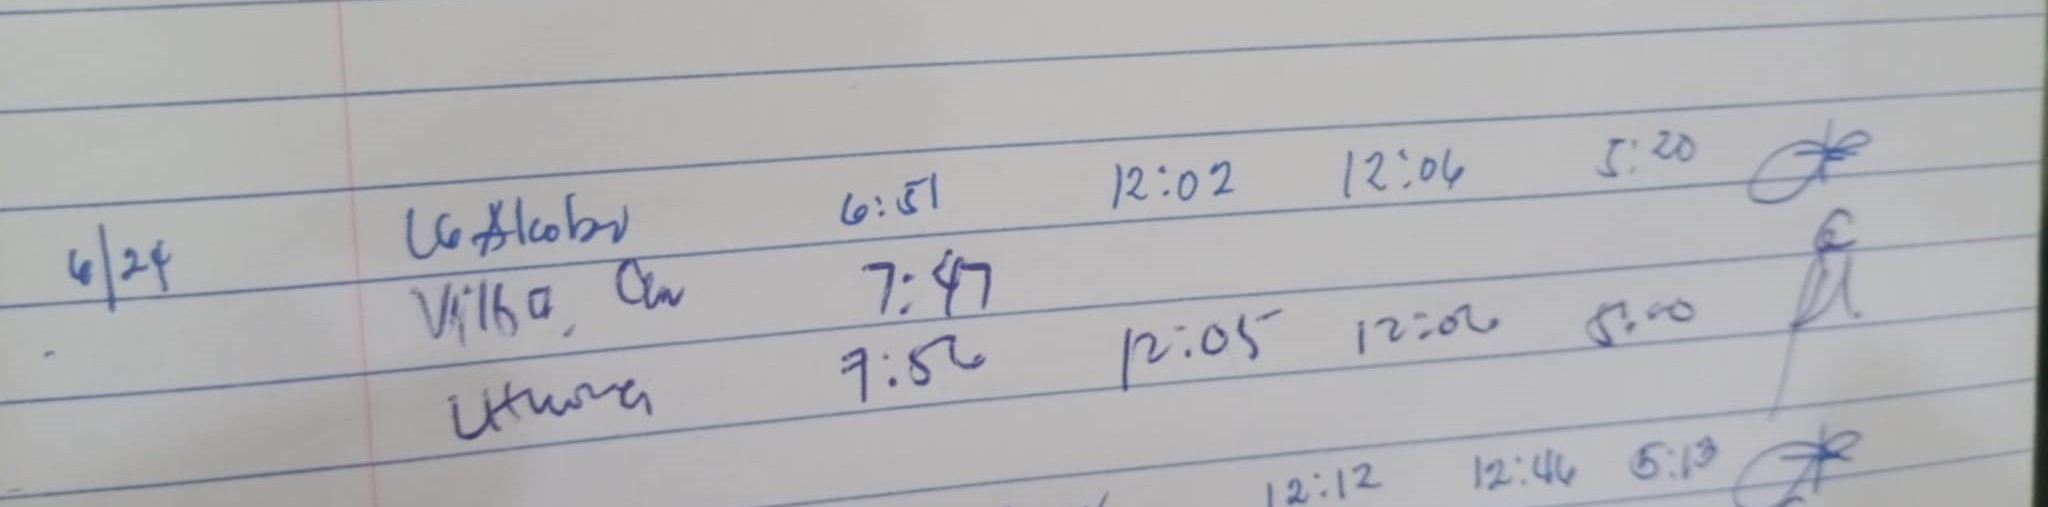 6/24 LG Alcober 6:51 12:02 12:06 5:20
Villa, 7:47
7:56 12:05 12:06 5:00
12:12 12:46 5:13